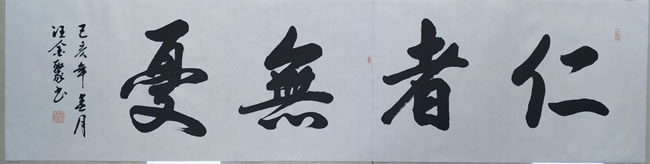 仁者無憂
己亥年春月
汪金聚书